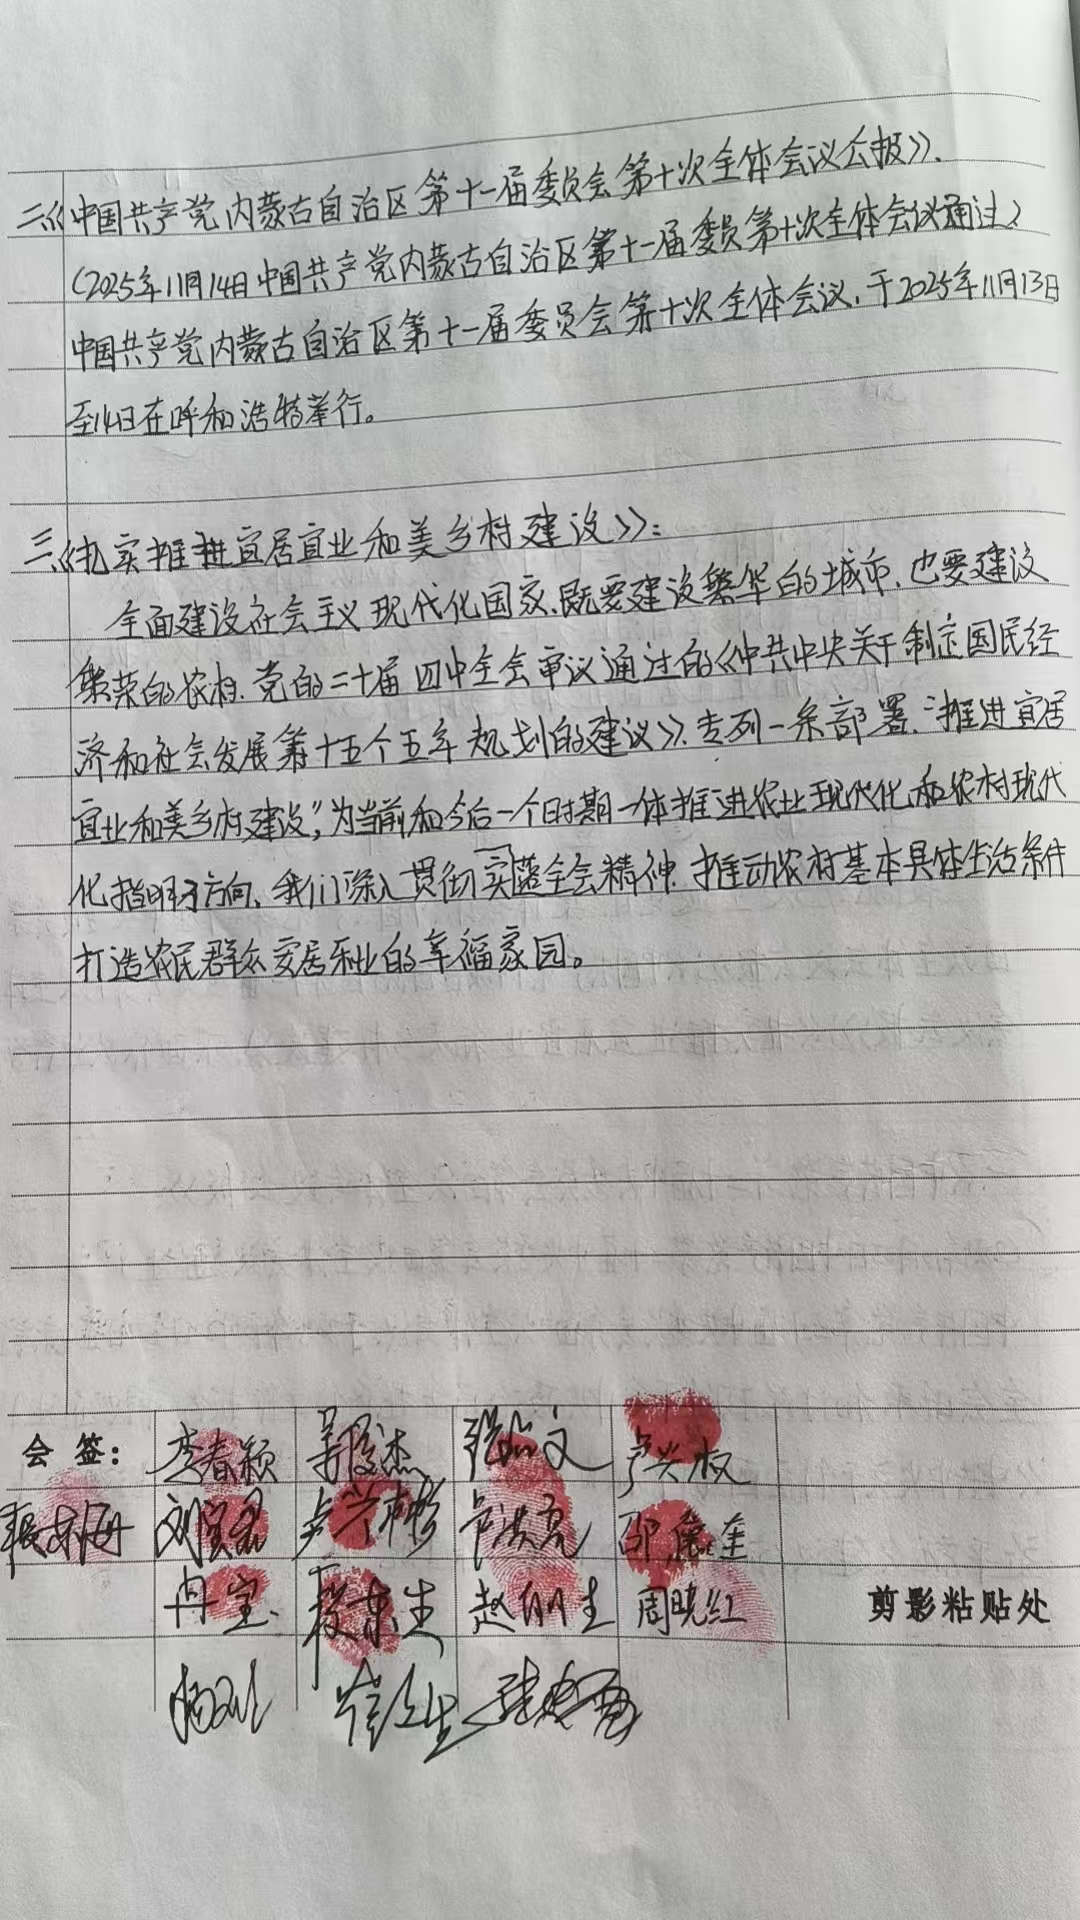 二《中国共产党内蒙古自治区第十一届委员会第十次全体会议公报》.
(2025年11月14日中国共产党内蒙古自治区第十一届委员第十次全体会议通过)
中国共产党内蒙古自治区第十一届委员会第十次全体会议,于2025年11月13日
至14日在呼和浩特举行。
三、《扎实推进宜居宜业和美乡村建设》:
全面建设社会主义现代化国家,既要建设繁华的城市,也要建设
繁荣的农村.党的二十届四中全会审议通过的《中共中央关于制定国民经
济和社会发展第十五个五年规划的建议》,专列一条部署,“推进宜居
宜业和美乡村建设”,为当前和今后一个时期一体推进农业现代化和农村现代
化指明了方向,我们深入贯彻实落全会精神.推动农村基本具体生活条件
打造农民群众安居乐业的幸福家园。
会 签: 李春颖 郭俊杰 卢兴权
卢洪亮 邵康奎
丹宝 段东生 赵明生 周晓红
剪影粘贴处